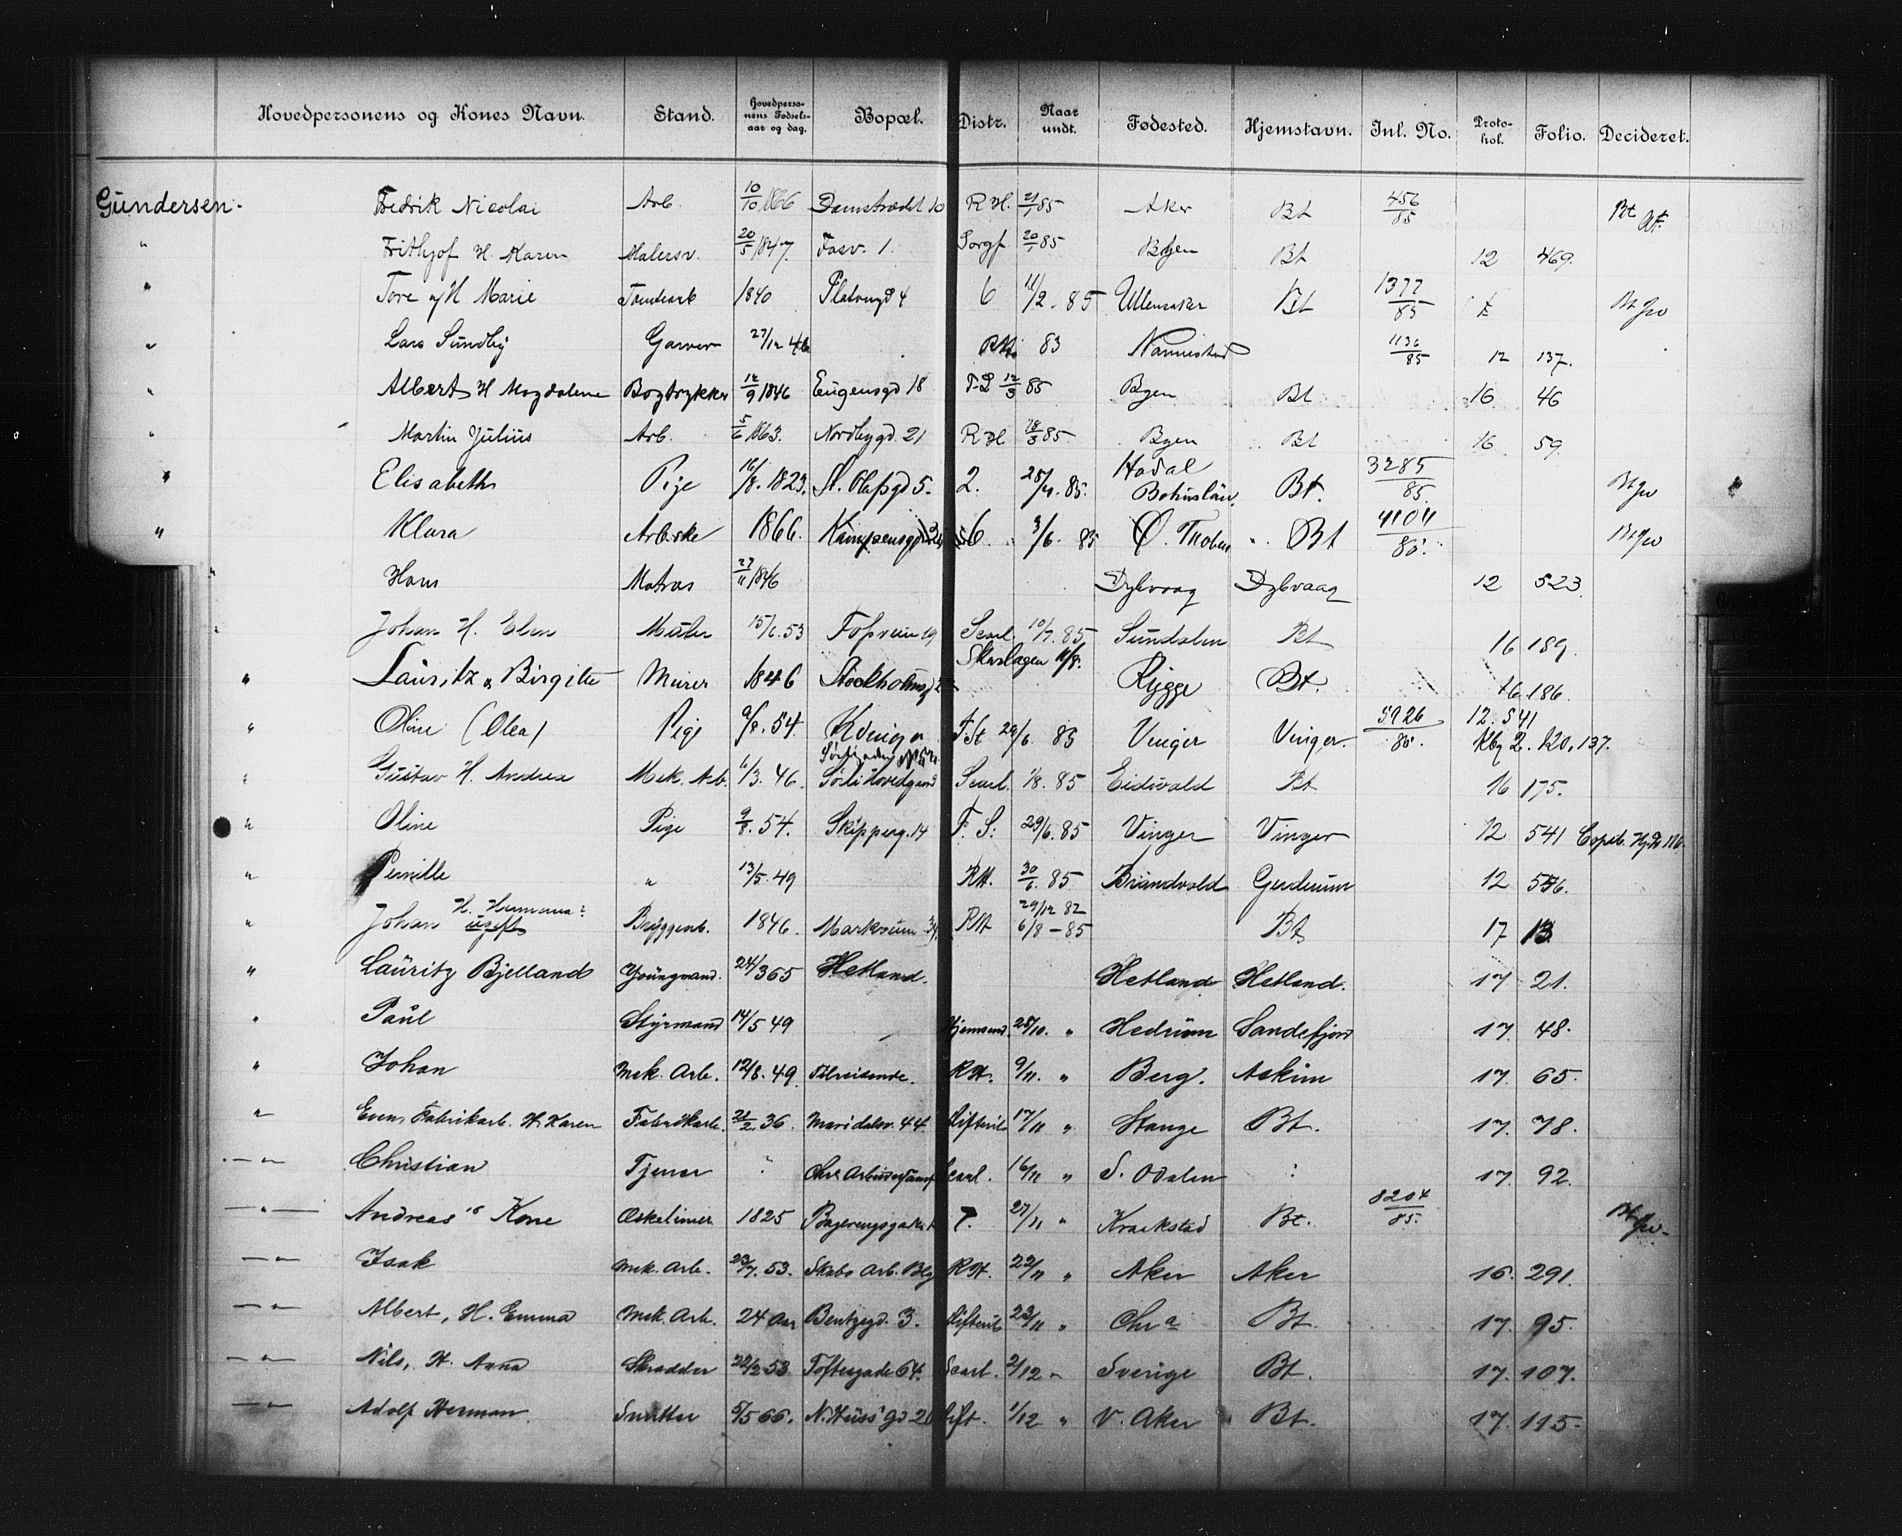 Hovedpersonens og Kones Navn. Stand. Hovedpersonens Fødselsaar og dag. Bopæl. Distr. Naar undt. Fødested. Hjemstavn. Inl. No. Protokol. Folio. Decideret.
Gundersen Fredrik Nicolai Arb. 10/10 1866 Damstrædet 10 R H. 21/1 85 Aker Bt 456/85 Bt
" Frithjof H. Karen Malersv. 20/5 1847. Fosv. 1. Sorgf 20/1 85 Byen Bt 12 469.
" Tore H Marie Tomtearb 1840 Platougd 4 6 11/2. 85 Ullensaker Bt 1377/85 Bt
" Lars Sundby Garver 27/12 46 RH. 83 Nannestad 1136/85 12 137.
" Albert H Magdalene Bogtrykker 12/9 1846 Eugensgd 18 12/3 85 Byen Bt 16 46
" Martin Julius Arb. 5/6 1863. Nordbygd. 21 R H 18/3 85 Byen Bt 16 59.
" Elisabeth Pige 16/8. 1823. St. Olafsgd 5. 2. 28/4. 85. Hodal Bohuslän. Bt. 3285/85 Bt
" Klara Arbske 1866. Kampensgd 6. 3/6. 85 Bt Bt
" Hans Matros 27/11 1846 Dybvaag Dybvaag 12 523.
" Johan H. Elen Maler 53 Fossveien 19 Scarl. 10/7. 85 Sundalen Bt 16 189.
" Lauritz Birgitte Murer 1846 Stockholmsg Skarlagen 11/8. Rygge Bt. 16 186.
" Oline (Olea) Pige 9/8. 54. F. St 29/6 85 Vinger Vinger. 5926/85. 12. 541 120, 137.
" Gustav H. Andrea Mek. Arb. 6/3. 46. Sörli Hovedgaard Scarl. 1/8. 85 Eidsvold Bt 16 175.
" Oline Pige 9/8. 54. Skipperg. 14 F. S: 29/6. 85 Vinger Vinger 12 541
" Pernille " 13/5. 49 RH. 30/6. 85 Brandvold Gjerdrum 12 556.
" Johan H. Hermana? ugift Bryggearb. 1846. Markveien 39. RH 29/12 82 6/8 – 85 Bt 17 13
" Lauritz Bjelland Youngmand. 24/3 65 Hetland. Hetland Hetland. 17 21.
" Paul Styrmand 14/5 49 Hjemsend. 28/10. " Hedrum Sandefjord 17. 48.
" Johan Mek. Arb. 12/8. 49. Tilreisende. RH. 9/11. " Berg. Askim 17. 65.
" Even, Fabrikarb. H. Karen Fabrikarb. 21/2. 36. Maridalsv. 44. Difterit 17/11 " Stange Bt. 17. 78.
— " — Christian Tjener ? Chra Arbeidersamf Scarl. 16/11 " S. Odalen : 17. 92.
— " — Andreas's Kone Oskelimer 1825 T. 27/11 " Kraakstad Bt. 8204/85.
— " — Isak Mek. Arb. 23/7. 53. Skabo Arb. Blg RH. 22/11 " Aker Aker 16. 291.
— " — Albert, H. Emma Mek. Arb. 24 Aar Bentzegd. 3. Difterit 23/11 " Chr a Bt. 17. 95.
— " — Nils, H. Anna Skrædder 22/2 53 Toftesgade 64. Scarl. 2/12 " Sverige Bt. 17. 107.
— " — Adolf Herman. Snedker 5/5 66. N. Huss' gd 20 Dift. 1/12 " V. Aker Bt. 17. 115.